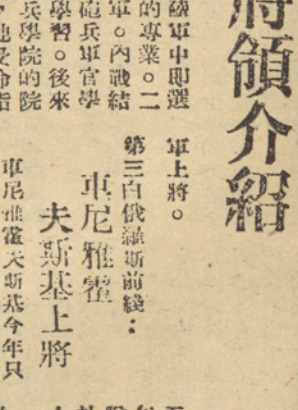 將領介紹
軍上將。
第三白俄羅斯前綫：
車尼雅霍
夫斯基上將
車尼雅霍夫斯基今年只
國軍中即選
的專業。二
軍。內戰結
砲兵軍官學
學習。後來
兵學院的院